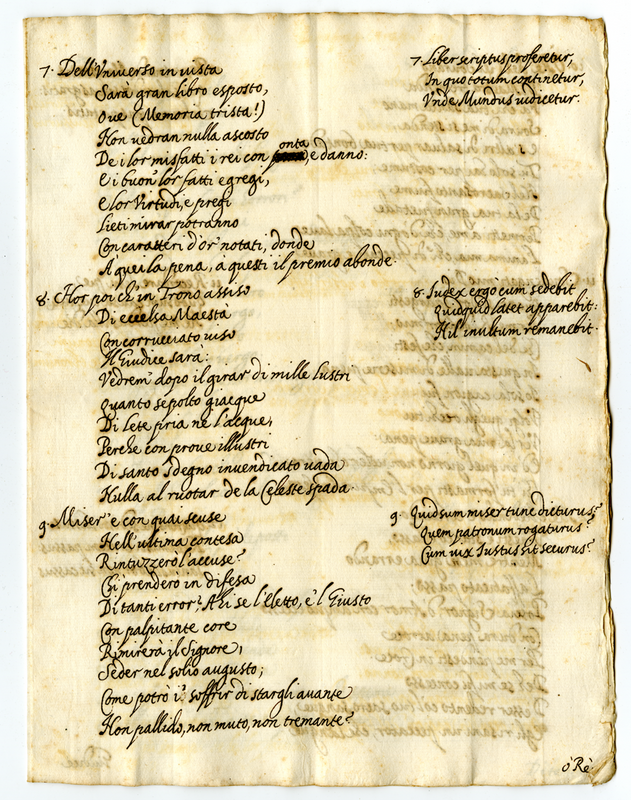 7. Dell'Vniverso in uista
Sarà gran libro esposto,
Oue (Memoria trista!)
Non uedran nulla ascosto
De i lor misfatti i rei con onta, e danno:
E i buon lor fatti egregi,
E lor Virtudi, e pregi
Lieti mirar potranno
Con caratteri d'or notati, donde
A quei la pena, a questi il premio abonde.
8. Hor poi ch'in Trono assiso
Di eccelsa Maestà
Con corrucciato uiso
Il Giudice sarà:
Vedrem' dopo il girar di mille lustri
Quanto sepolto giacque
Di Lete pria ne l'acque,
Perche con prove illustri
Di santo sdegno invendicato uada
Nulla al ruotar de la Celeste spada.
9. Miser' e con quai scuse
Nell'ultima contesa
Rintuzzerò l'accuse?
Chi prenderò in difesa
Di tanti error? Ahi se l'Eletto, e 'l Giusto
Con palpitante core
Rimirerà il Signore,
Seder nel solio augusto;
Come potrò i' soffrir di stargli auante
Non pallido, non muto, non tremante?
7. Liber scriptus proferetur,
In quo totum continetur,
Vnde Mundus iudicetur.
8. Iudex ergò cum sedebit
Quidquid latet apparebit:
Nil inultum remanebit.
9. Quid sum miser tunc dicturus?
Quem patronum rogaturus?
Cum uix Iustus sit securus?
ò Rè